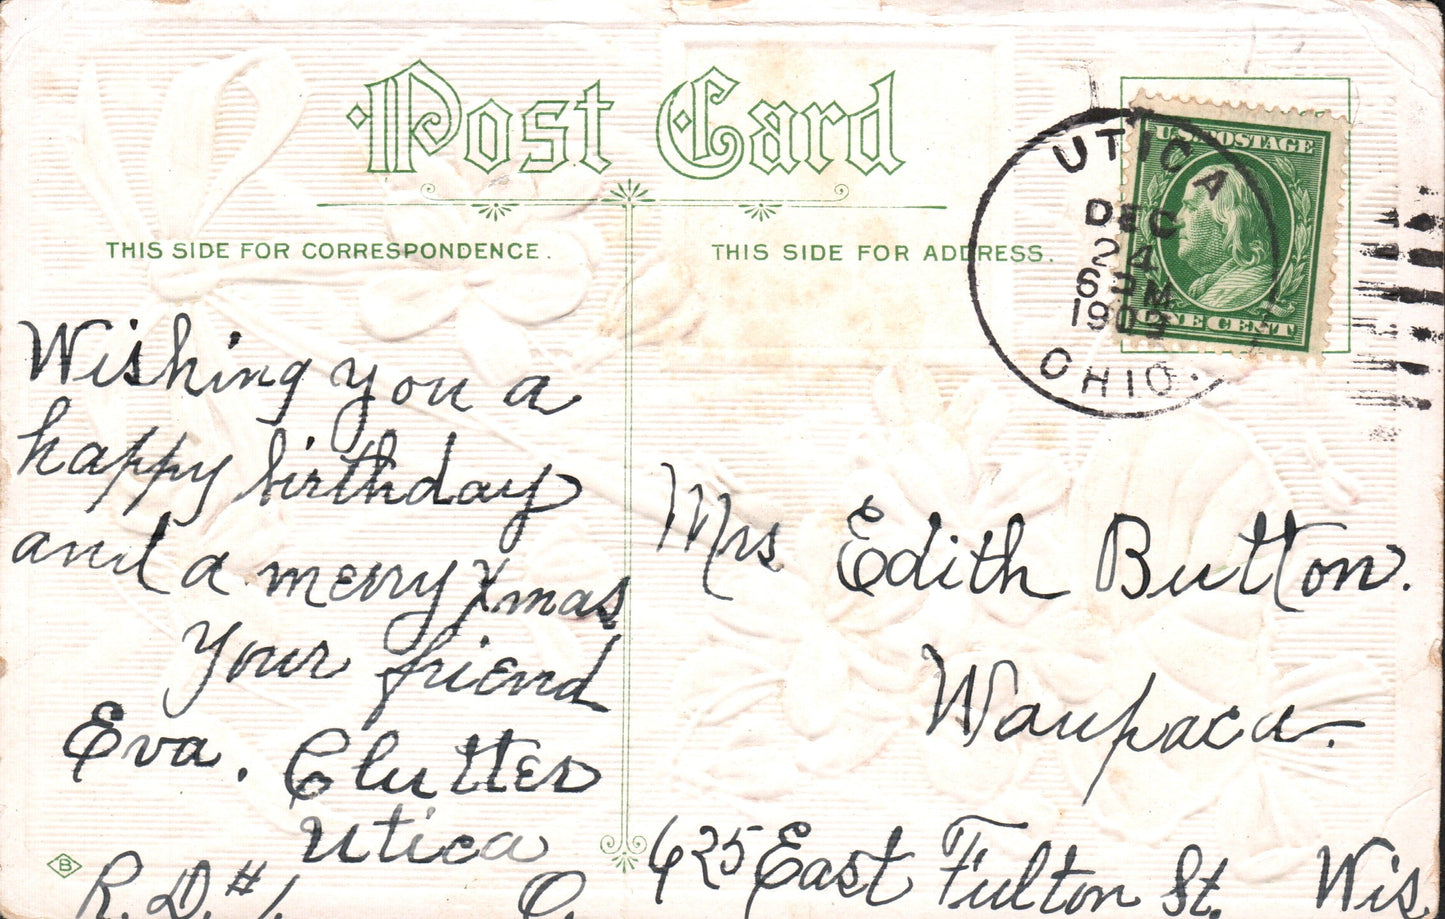 Post Card
THIS SIDE FOR CORRESPONDENCE.
THIS SIDE FOR ADDRESS.
U.S. POSTAGE
ONE CENT
UTICA
DEC
24
6 PM
1909
OHIO.
Wishing you a
happy birthday
and a merry Xmas
Your friend
Eva. Clutter
Utica
R.D. #1. O.
B
Mrs Edith Button.
Waupaca.
625 East Fulton St. Wis.